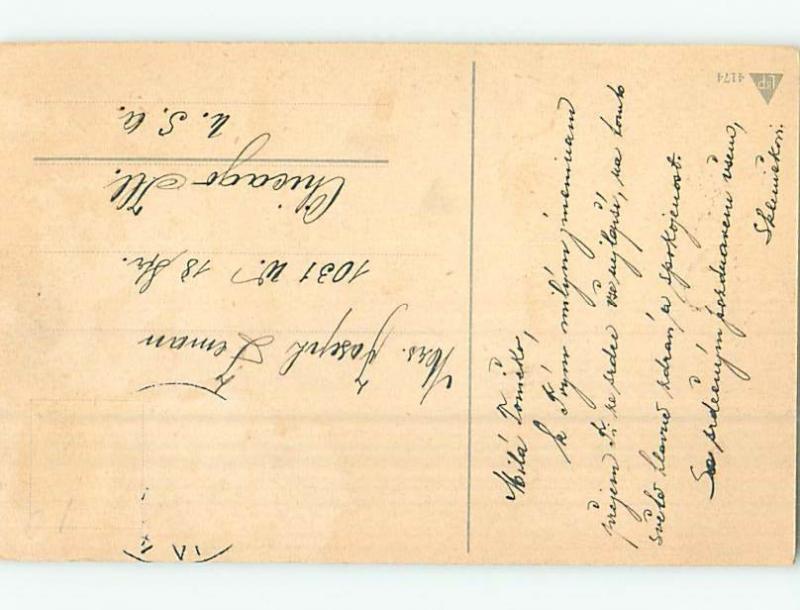 Milá Toničko,
k Tvým milým jmeninám
přejem Ti ze srdce vše nejlepší, na tomto
světě hlavně zdraví a spokojenost.
Se srdečným pozdravem všem,
Skleničkovi.
Mrs. Joseph Zeman
1031 W. 18 Str.
Chicago Ill.
U. S. A.
4174